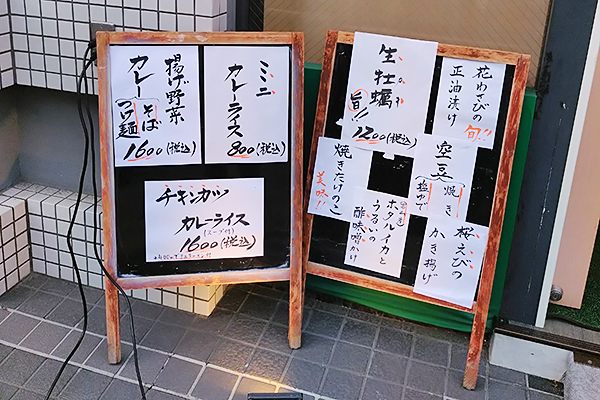 ミニ
カレーライス
800(税込)
揚げ野菜
カレー
そば
つけ麺
1600(税込)
チキンカツ
カレーライス
(スープ付)
1600(税込)
花わさびの
正油漬け
旬!!
生牡蠣
旬!!
1200(税込)
空豆
焼き
塩ゆで
焼きたけのこ
美味!!
ホタルイカと
うるいの
酢味噌かけ
桜えびの
かき揚げ